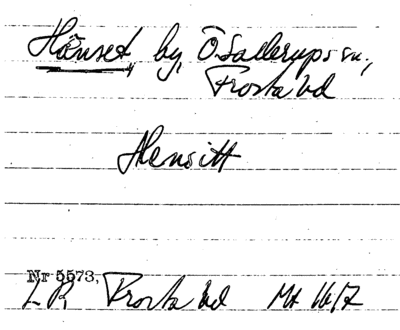 Hänset, by, Ö Sallerups sn.,
Frosta hd
Hensitt
Nr 5573,
L R, Frosta hd Mt 16/7